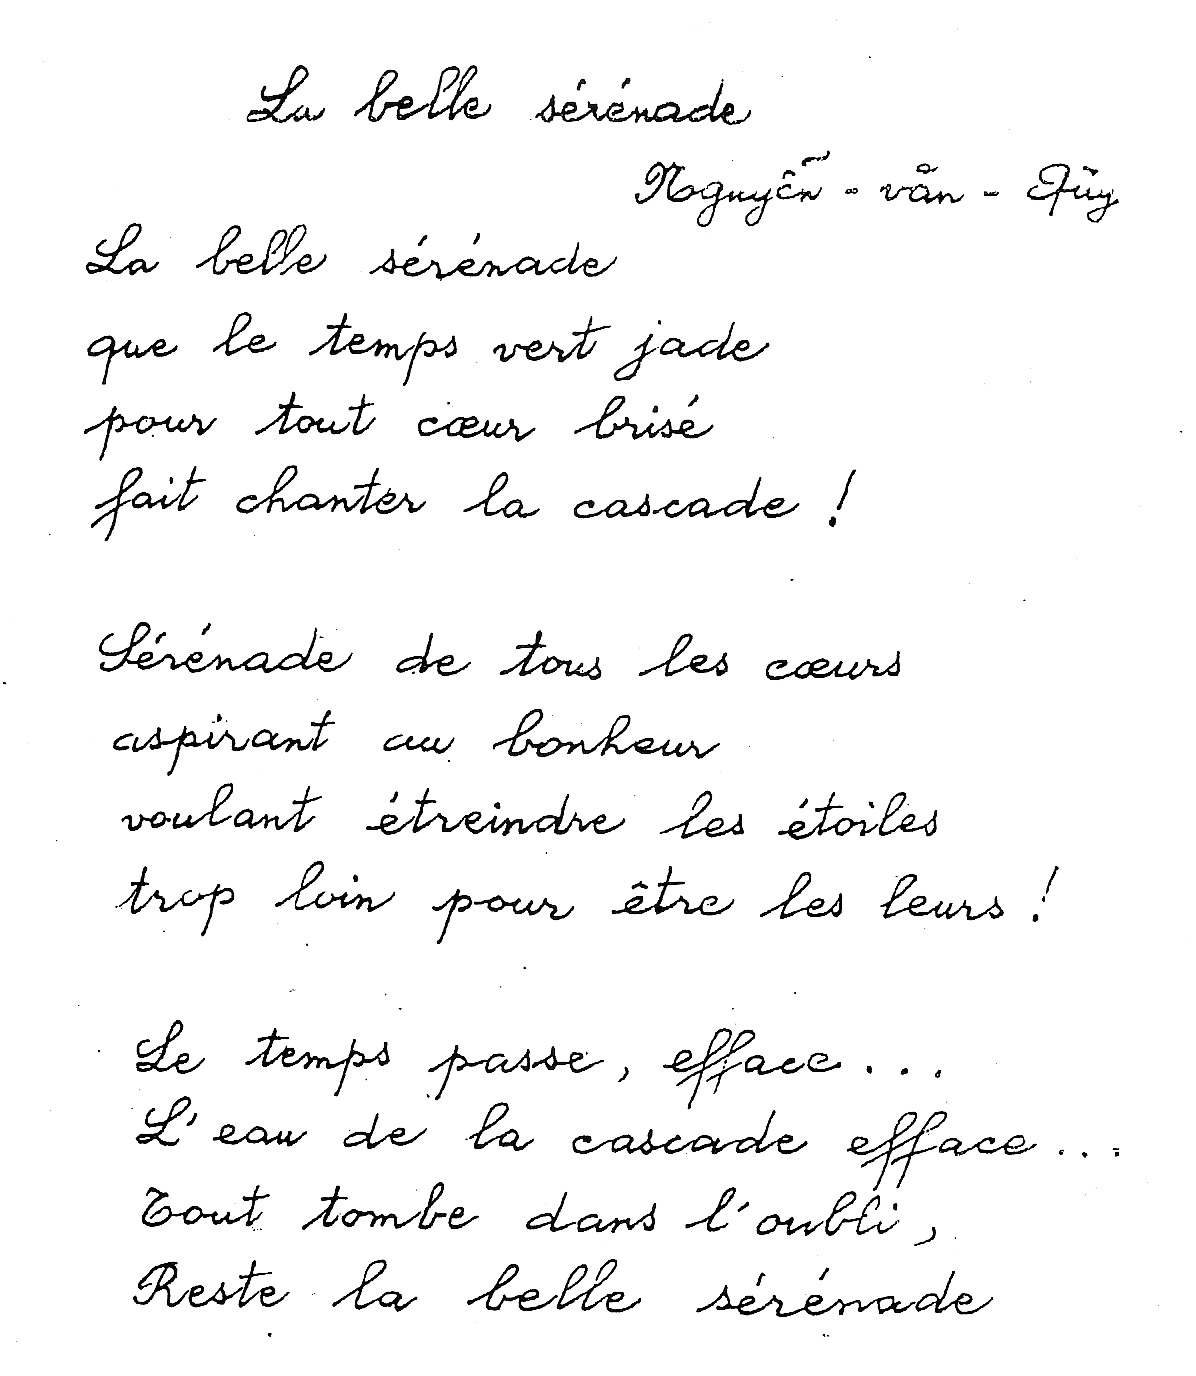 La belle sérénade
Nguyễn - văn - Qũy
La belle sérénade
que le temps vert jade
pour tout cœur brisé
fait chanter la cascade !
Sérénade de tous les cœurs
aspirant au bonheur
voulant étreindre les étoiles
trop loin pour être les leurs !
Le temps passe, efface...
L'eau de la cascade efface...
Tout tombe dans l'oubli,
Reste la belle sérénade